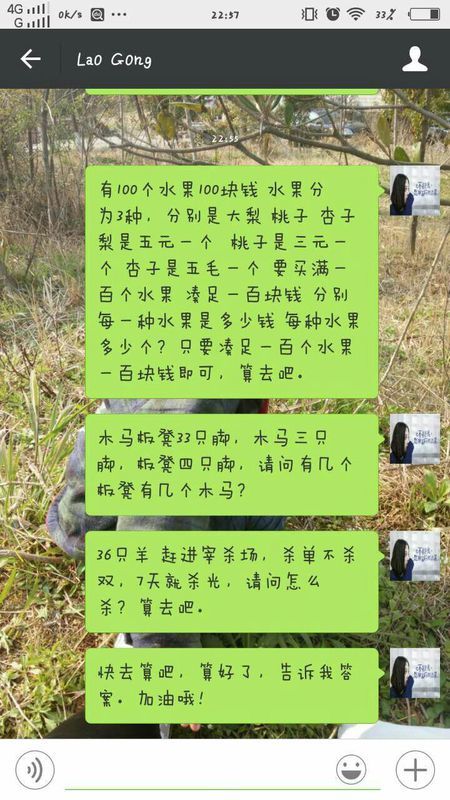 4G
G
0K/s
22:57
33%
Lao Gong
22:55
有100个水果100块钱 水果分
为3种，分别是大梨 桃子 杏子
梨是五元一个 桃子是三元一
个 杏子是五毛一个 要买满一
百个水果 凑足一百块钱 分别
每一种水果是多少钱 每种水果
多少个？只要凑足一百个水果
一百块钱即可，算去吧。
木马板凳33只脚，木马三只
脚，板凳四只脚，请问有几个
板凳有几个木马？
36只羊 赶进宰杀场，杀单不杀
双，7天就杀光，请问怎么
杀？算去吧。
快去算吧，算好了，告诉我答
案。加油哦！